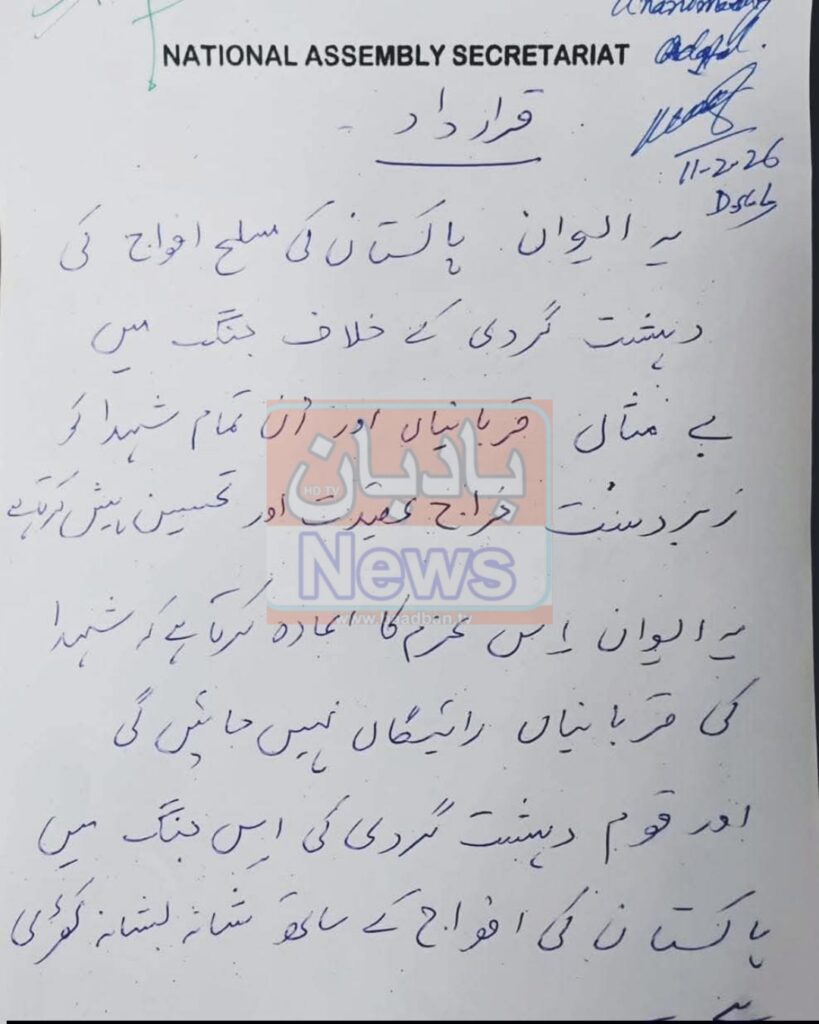 NATIONAL ASSEMBLY SECRETARIAT
11-2-26
قرارداد
یہ ایوان پاکستان کی مسلح افواج کی
دہشت گردی کے خلاف جنگ میں
بے مثال قربانیاں اور اُن تمام شہدا کو
زبردست خراج عقیدت اور تحسین پیش کرتا ہے
یہ ایوان اِس عزم کا اعادہ کرتا ہے کہ شہدا
کی قربانیاں رائیگاں نہیں جائیں گی
اور قوم دہشت گردی کی اِس جنگ میں
پاکستان کی افواج کے ساتھ شانہ بشانہ کھڑی
ہے
بادبان
HD TV
News
www.baadban.tv